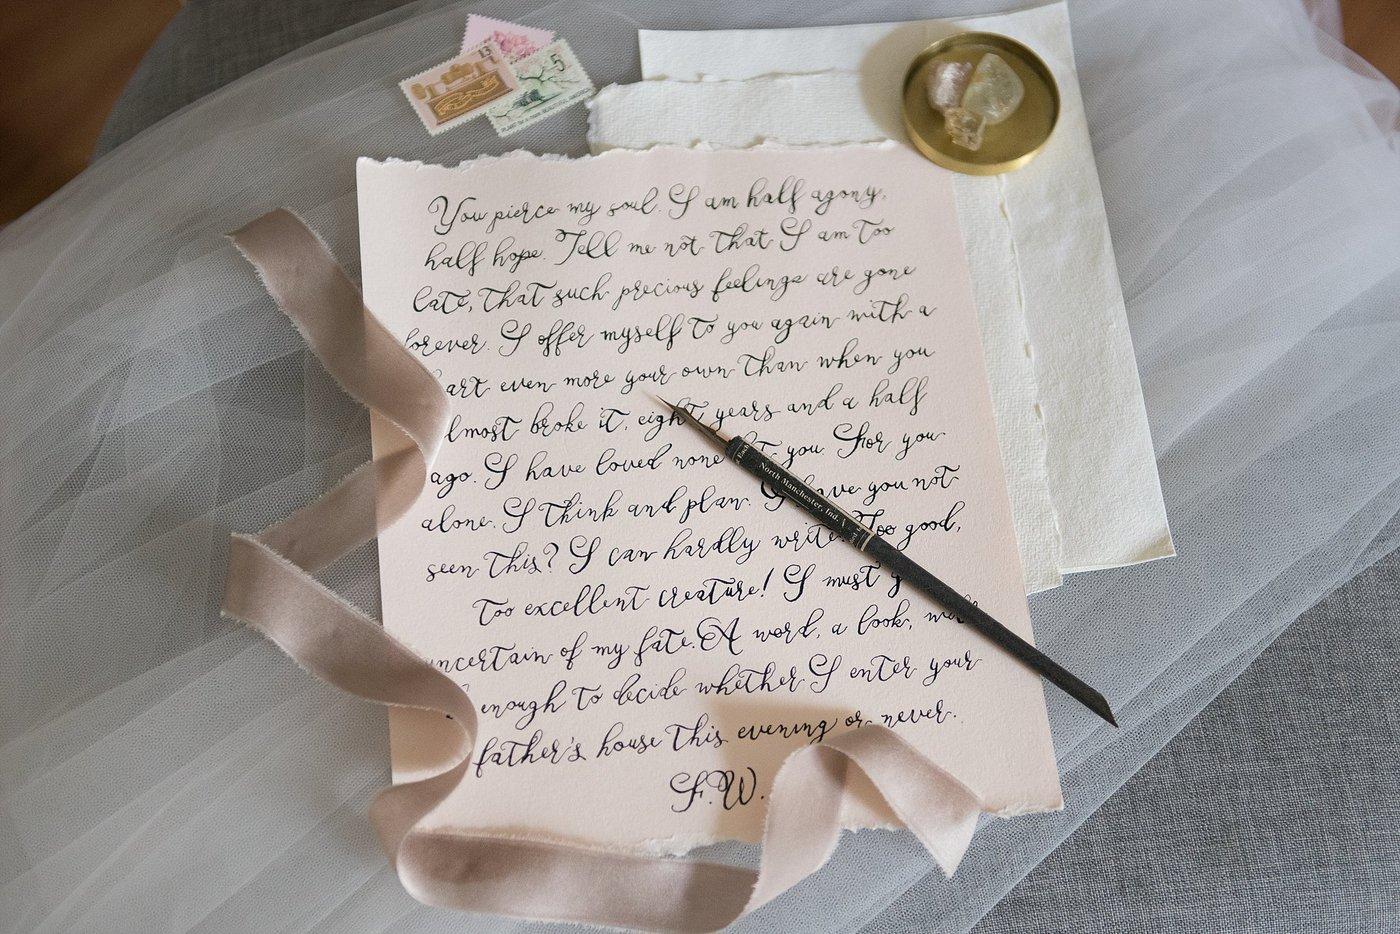 13
5
PLANT for a more BEAUTIFUL AMERICA
You pierce my soul. I am half agony,
half hope. Tell me not that I am too
late, that such precious feelings are gone
forever. I offer myself to you again with a
art even more your own than when you
lmost broke it, eight years and a half
ago. I have loved none you. For you
alone. I think and plan. have you not
seen this? I can hardly write. Too good,
too excellent creature! I must
uncertain of my fate. A word, a look,
enough to decide whether I enter your
father's house this evening or never.
F.W.
North Manchester, Ind.